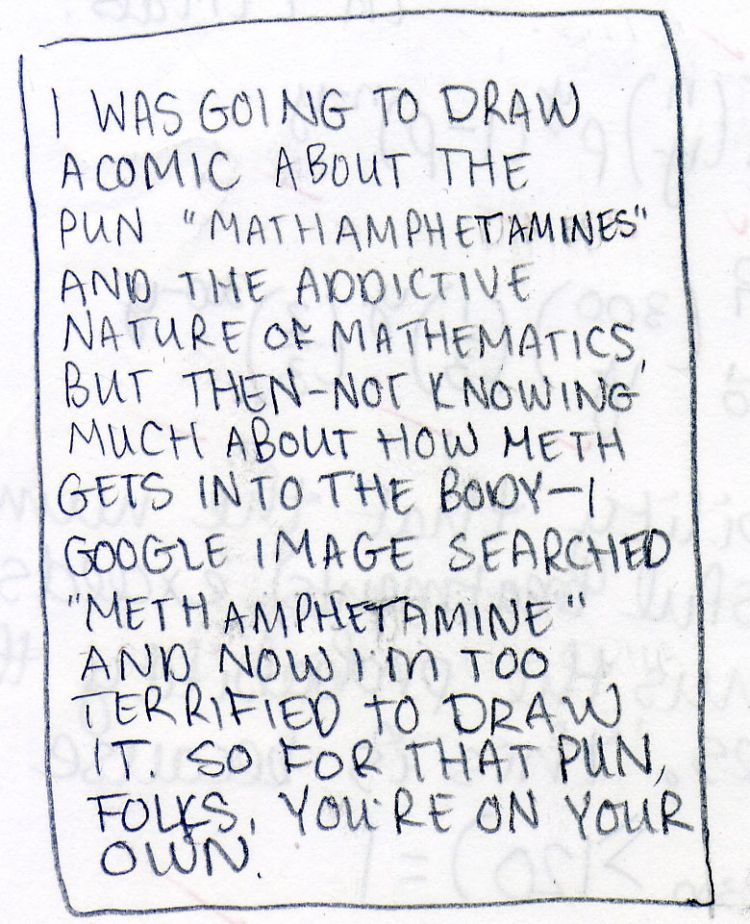 I WAS GOING TO DRAW
A COMIC ABOUT THE
PUN "MATHAMPHETAMINES"
AND THE ADDICTIVE
NATURE OF MATHEMATICS,
BUT THEN–NOT KNOWING
MUCH ABOUT HOW METH
GETS INTO THE BODY–I
GOOGLE IMAGE SEARCHED
"METHAMPHETAMINE"
AND NOW I'M TOO
TERRIFIED TO DRAW
IT. SO FOR THAT PUN,
FOLKS, YOU'RE ON YOUR
OWN.